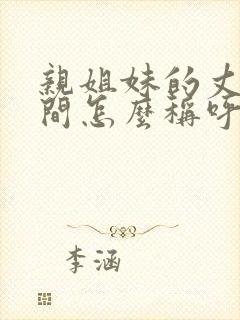 親姐妹的丈
間怎麼稱呼
李涵